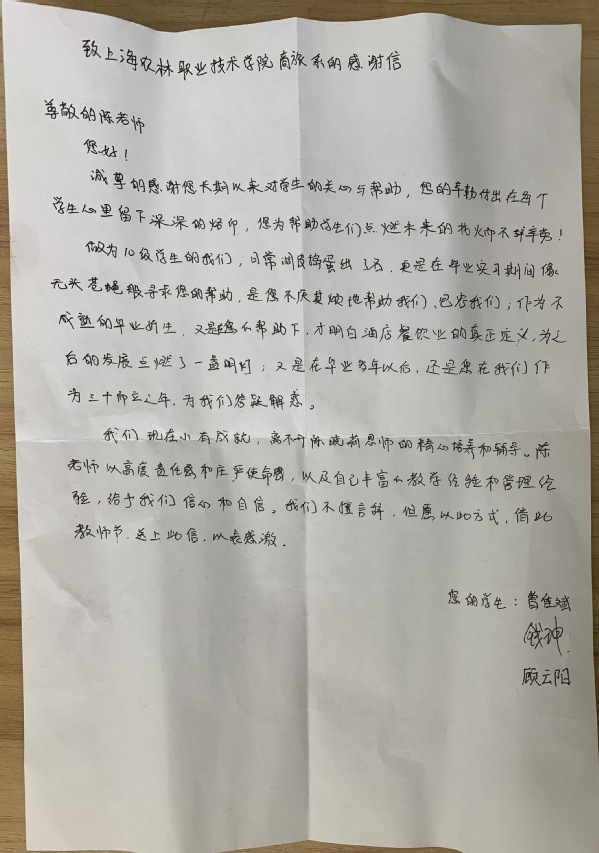 致上海农林职业技术学院商旅系的感谢信
尊敬的陈老师
您好！
诚尊的感谢您长期以来对学生的关心与帮助，您的辛勤付出在每个
学生心里留下深深的烙印，您为帮助学生们点燃未来的抱火而不辞辛苦！
做为10级学生的我们，日常调皮捣蛋出了名，更是在毕业实习期间像
无头苍蝇般寻求您的帮助，是您不厌其烦地帮助我们、包容我们；作为不
成熟的毕业新生，又是在您的帮助下，才明白酒店餐饮业的真正定义，为之
后的发展点燃了一盏明灯；又是在毕业多年以后，还是您在我们作
为三十而立之年，为我们答疑解惑。
我们现在小有成就，离不开陈晓莉恩师的精心培养和辅导。陈
老师以高度责任感和庄严使命感，以及自己丰富的教学经验和管理经
验，给予我们信心和自信。我们不擅言辞，但愿以此方式，借此
教师节，送上此信，以表感激。
您的学生：曾佳斌
钱坤
顾云阳